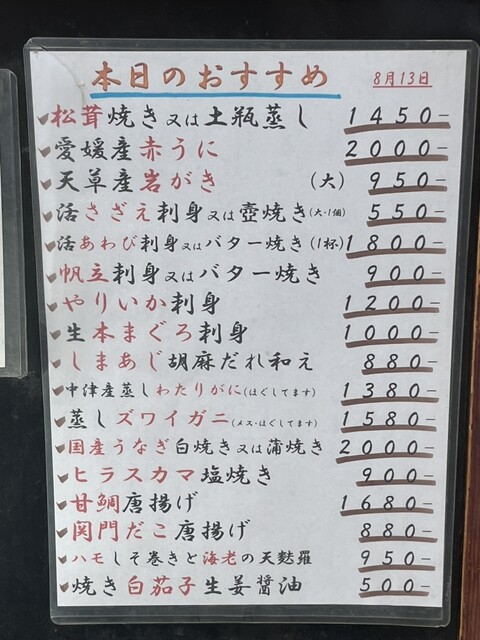 本日のおすすめ 8月13日
松茸焼き又は土瓶蒸し 1450-
愛媛産赤うに 2000-
天草産岩がき (大) 950-
活さざえ刺身又は壺焼き(大・1個) 550-
活あわび刺身又はバター焼き(1杯) 1800-
帆立刺身又はバター焼き 900-
やりいか刺身 1200-
生本まぐろ刺身 1000-
しまあじ胡麻だれ和え 880-
中津産蒸しわたりがに(ほぐしてます) 1380-
蒸しズワイガニ(メス・ほぐしてます) 1580-
国産うなぎ白焼き又は蒲焼き 2000-
ヒラスカマ塩焼き 900-
甘鯛唐揚げ 1680-
関門だこ唐揚げ 880-
ハモしそ巻きと海老の天麩羅 950-
焼き白茄子生姜醤油 500-